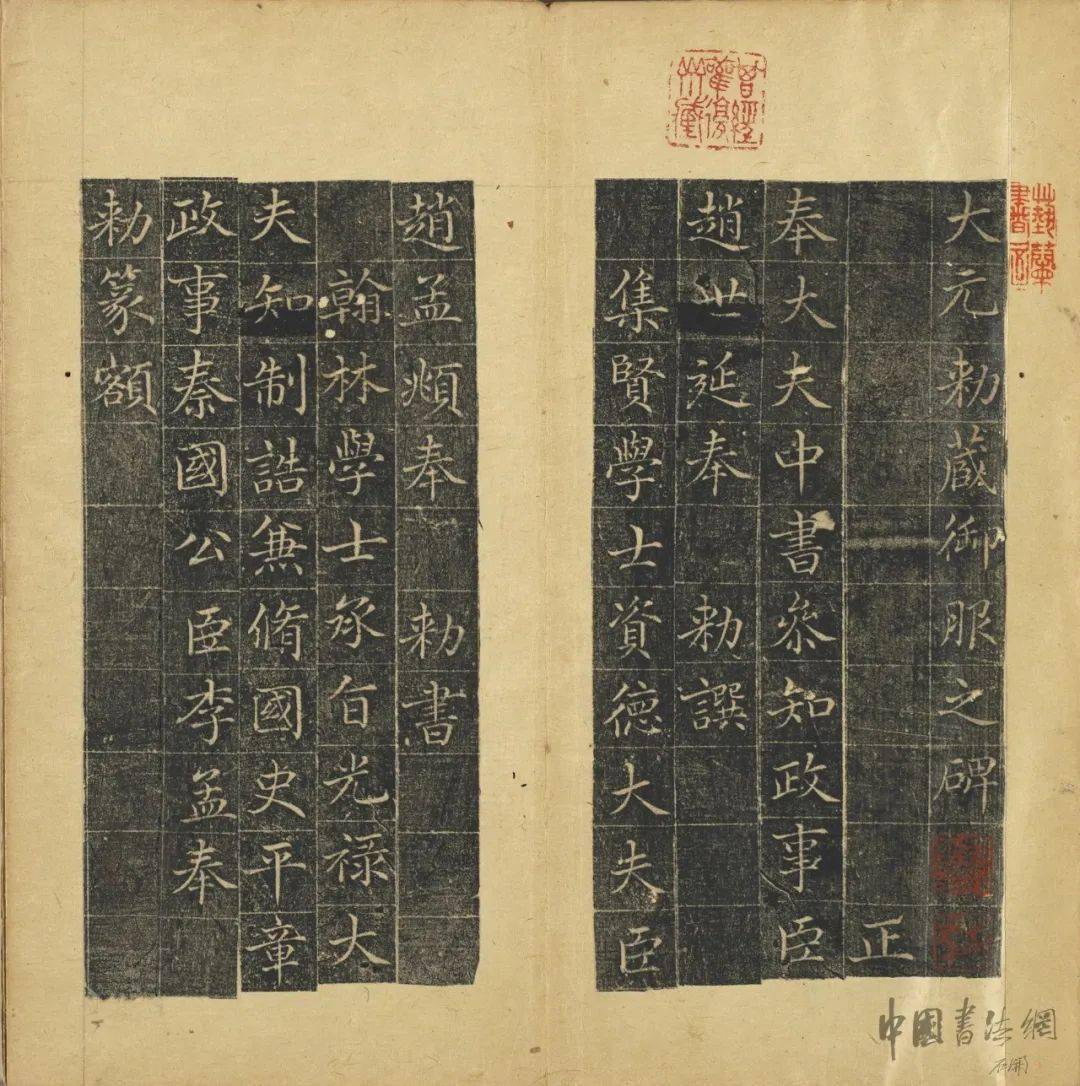 大元勅藏御服之碑
正
奉大夫中書叅知政事臣
趙世延奉 勅譔
集賢學士資德大夫臣
趙孟頫奉 勅書
翰林學士承旨光禄大
夫知制誥兼脩國史平章
政事秦國公臣李孟奉
勅篆額
中国書法網